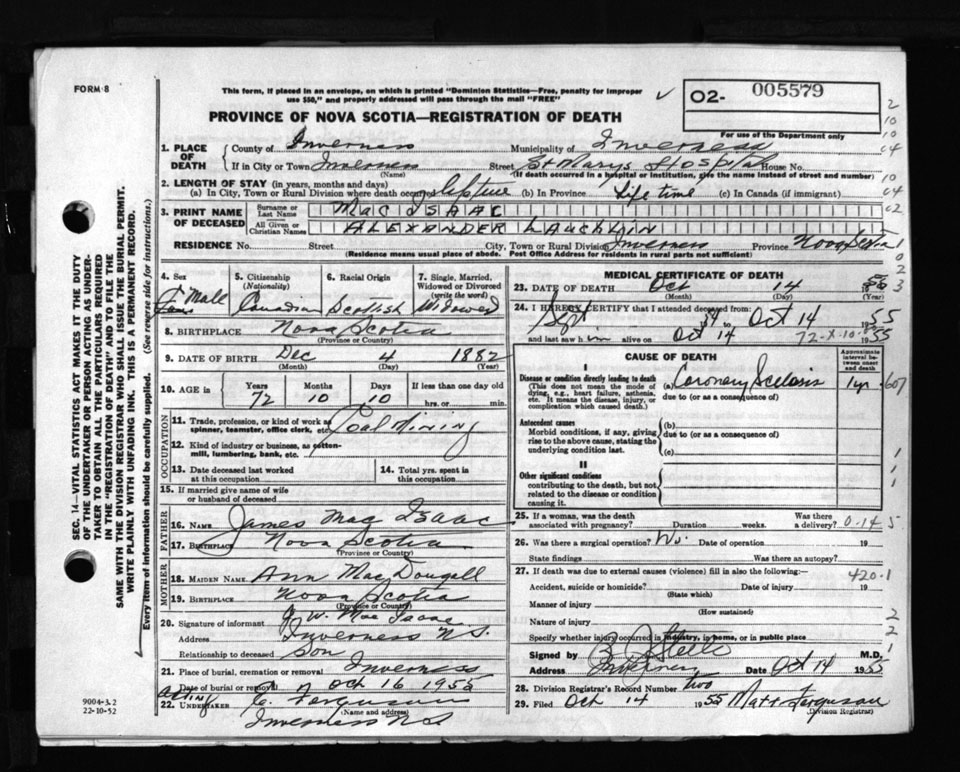 FORM 8
This form, if placed in an envelope, on which is printed "Dominion Statistics—Free, penalty for improper
use $50," and properly addressed will pass through the mail "FREE"
PROVINCE OF NOVA SCOTIA—REGISTRATION OF DEATH
O2- 005579
For use of the Department only
1. PLACE OF DEATH County of Inverness Municipality of Inverness
If in City or Town Inverness Street St Marys Hospital House No.
(Name) (If death occurred in a hospital or institution, give the name instead of street and number)
2. LENGTH OF STAY (in years, months and days)
(a) In City, Town or Rural Division where death occurred Lifetime (b) In Province Life time (c) In Canada (if immigrant)
3. PRINT NAME OF DECEASED
Surname or Last Name MacIsaac
All Given or Christian Names Alexander Lauchlin
RESIDENCE No. Street City, Town or Rural Division Inverness Province Nova Scotia
(Residence means usual place of abode. Post Office Address for residents in rural parts not sufficient)
4. Sex Male
5. Citizenship (Nationality) Canadian
6. Racial Origin Scottish
7. Single, Married, Widowed or Divorced (write the word) Widowed
8. BIRTHPLACE Nova Scotia
(Province or Country)
9. DATE OF BIRTH Dec 4 1882
(Month) (Day) (Year)
10. AGE in Years Months Days If less than one day old
72 10 10 hrs. or min.
OCCUPATION
11. Trade, profession, or kind of work as spinner, teamster, office clerk, etc. Coal Mining
12. Kind of industry or business, as cotton-mill, lumbering, bank, etc.
13. Date deceased last worked at this occupation
14. Total yrs. spent in this occupation
15. If married give name of wife or husband of deceased
FATHER
16. NAME James Mac Isaac
17. BIRTHPLACE Nova Scotia
(Province or Country)
MOTHER
18. MAIDEN NAME Ann MacDougall
19. BIRTHPLACE Nova Scotia
(Province or Country)
20. Signature of informant J W. Mac Isaac
Address Inverness N.S.
Relationship to deceased Son
21. Place of burial, cremation or removal Inverness
Date of burial or removal Oct 16 1955
22. Acting UNDERTAKER C. Ferguson
(Name and address)
Inverness N.S.
MEDICAL CERTIFICATE OF DEATH
23. DATE OF DEATH Oct 14 55
(Month) (Day) (Year)
24. I HEREBY CERTIFY that I attended deceased from:
Sept Oct 14 1955
and last saw him alive on Oct 14 1955
72-X-10
CAUSE OF DEATH
Approximate interval between onset and death
I
Disease or condition directly leading to death
(This does not mean the mode of dying, e.g., heart failure, asthenia, etc. It means the disease, injury, or complication which caused death.)
(a) Coronary Sclerosis 1 yr.
due to (or as a consequence of)
Antecedent causes
Morbid conditions, if any, giving rise to the above cause, stating the underlying condition last.
(b)
due to (or as a consequence of)
(c)
II
Other significant conditions contributing to the death, but not related to the disease or condition causing it.
25. If a woman, was the death associated with pregnancy? Duration weeks. Was there a delivery? 0-14
26. Was there a surgical operation? No. Date of operation 19
State findings Was there an autopsy?
27. If death was due to external causes (violence) fill in also the following:— 420.1
Accident, suicide or homicide? Date of injury 19
(State which)
Manner of injury
(How sustained)
Nature of injury
Specify whether injury occurred in industry, in home, or in public place
Signed by M.D.
Address Inverness Date Oct 14 1955
28. Division Registrar's Record Number two
29. Filed Oct 14 1955 Matt Ferguson
(Division Registrar)
SEC. 14—VITAL STATISTICS ACT MAKES IT THE DUTY
OF THE UNDERTAKER OR PERSON ACTING AS UNDER-
TAKER TO OBTAIN ALL THE PARTICULARS REQUIRED
IN THE "REGISTRATION OF DEATH" AND TO FILE THE
SAME WITH THE DIVISION REGISTRAR WHO SHALL ISSUE THE BURIAL PERMIT.
WRITE PLAINLY WITH UNFADING INK. THIS IS A PERMANENT RECORD.
Every item of information should be carefully supplied. (See reverse side for instructions.)
9004-3.2
22-10-52